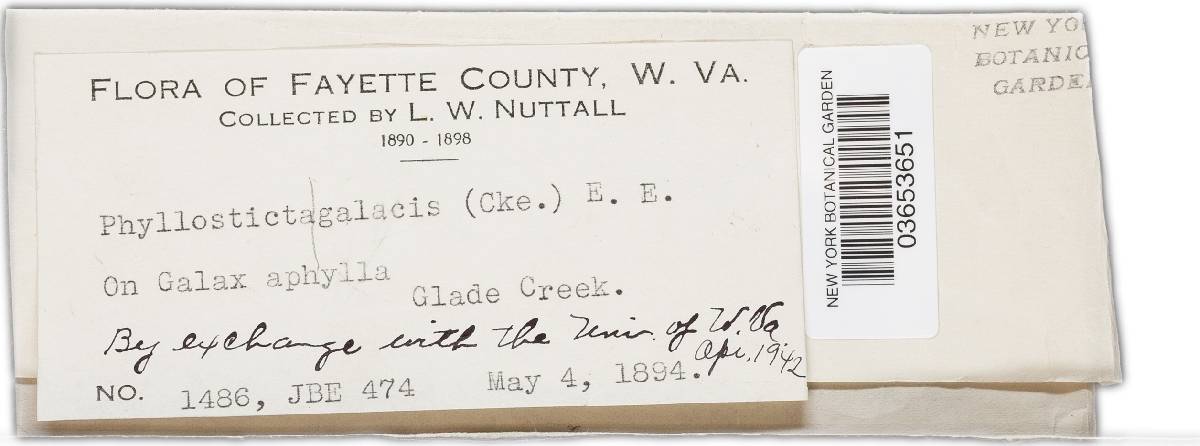 FLORA OF FAYETTE COUNTY, W. VA.
COLLECTED BY L. W. NUTTALL
1890 - 1898
Phyllostictagalacis (Cke.) E. E.
On Galax aphylla
Glade Creek.
By exchange with the Univ. of W. Va
Apr. 1942
NO. 1486, JBE 474 May 4, 1894.
NEW YORK BOTANICAL GARDEN
03653651
NEW YO
BOTANIC
GARDE